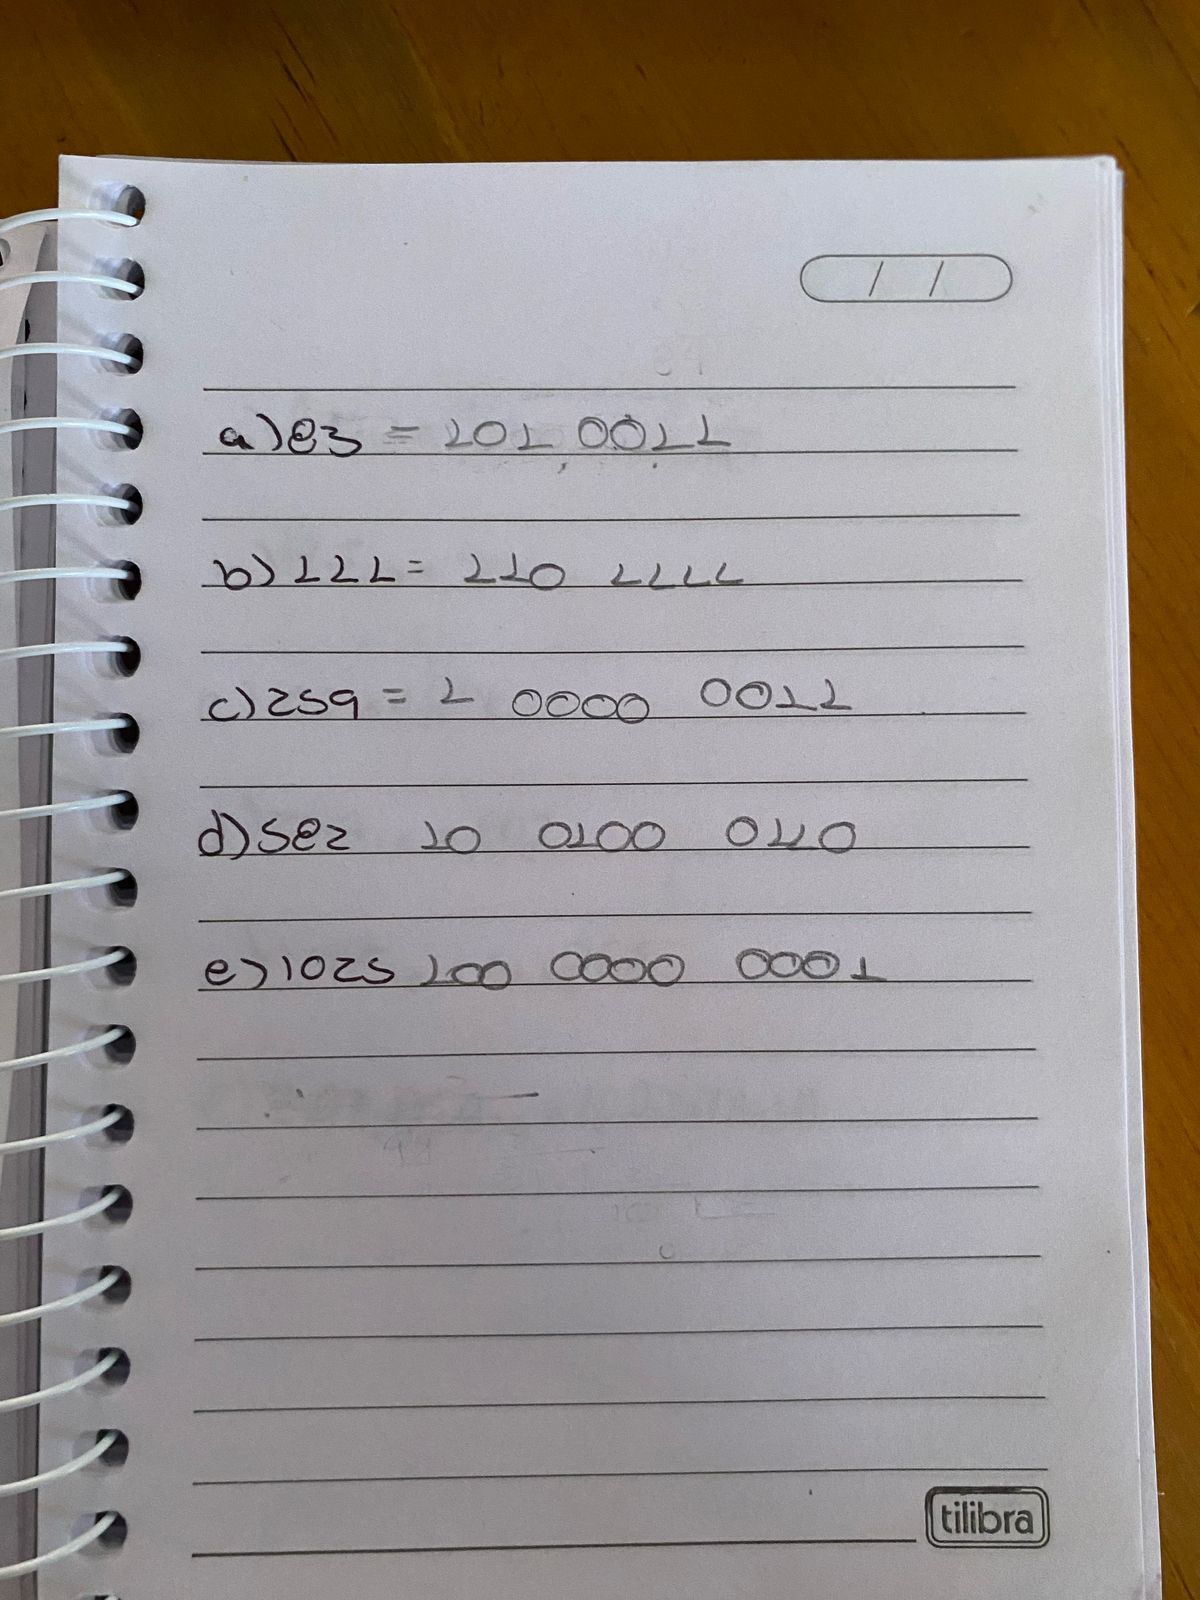 / /
a) 83 = 101 0011
b) 111 = 110 1111
c) 259 = 1 0000 0011
d) 582 10 0100 0110
e) 1025 100 0000 0001
tilibra